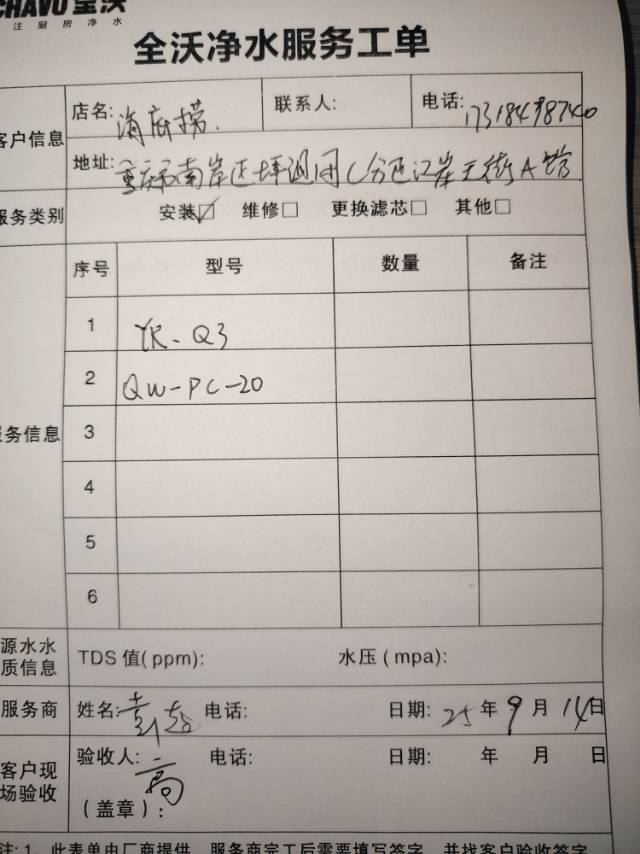 CHAVO 全沃
注厨房净水
全沃净水服务工单
客户信息
店名: 海底捞.
联系人:
电话: 17318498740
地址: 重庆市南岸区坪 C分区江岸天街A馆
服务类别
安装☑ 维修□ 更换滤芯□ 其他□
服务信息
序号 型号 数量 备注
1 YR-Q3
2 QW-PC-20
3
4
5
6
源水水质信息
TDS 值(ppm): 水压(mpa):
服务商
姓名: 电话: 日期: 25 年 9 月 14 日
客户现场验收
验收人: 高 电话: 日期: 年 月 日
(盖章):
注: 1、此表单由厂商提供, 服务商完工后需要填写签字, 并找客户验收签字